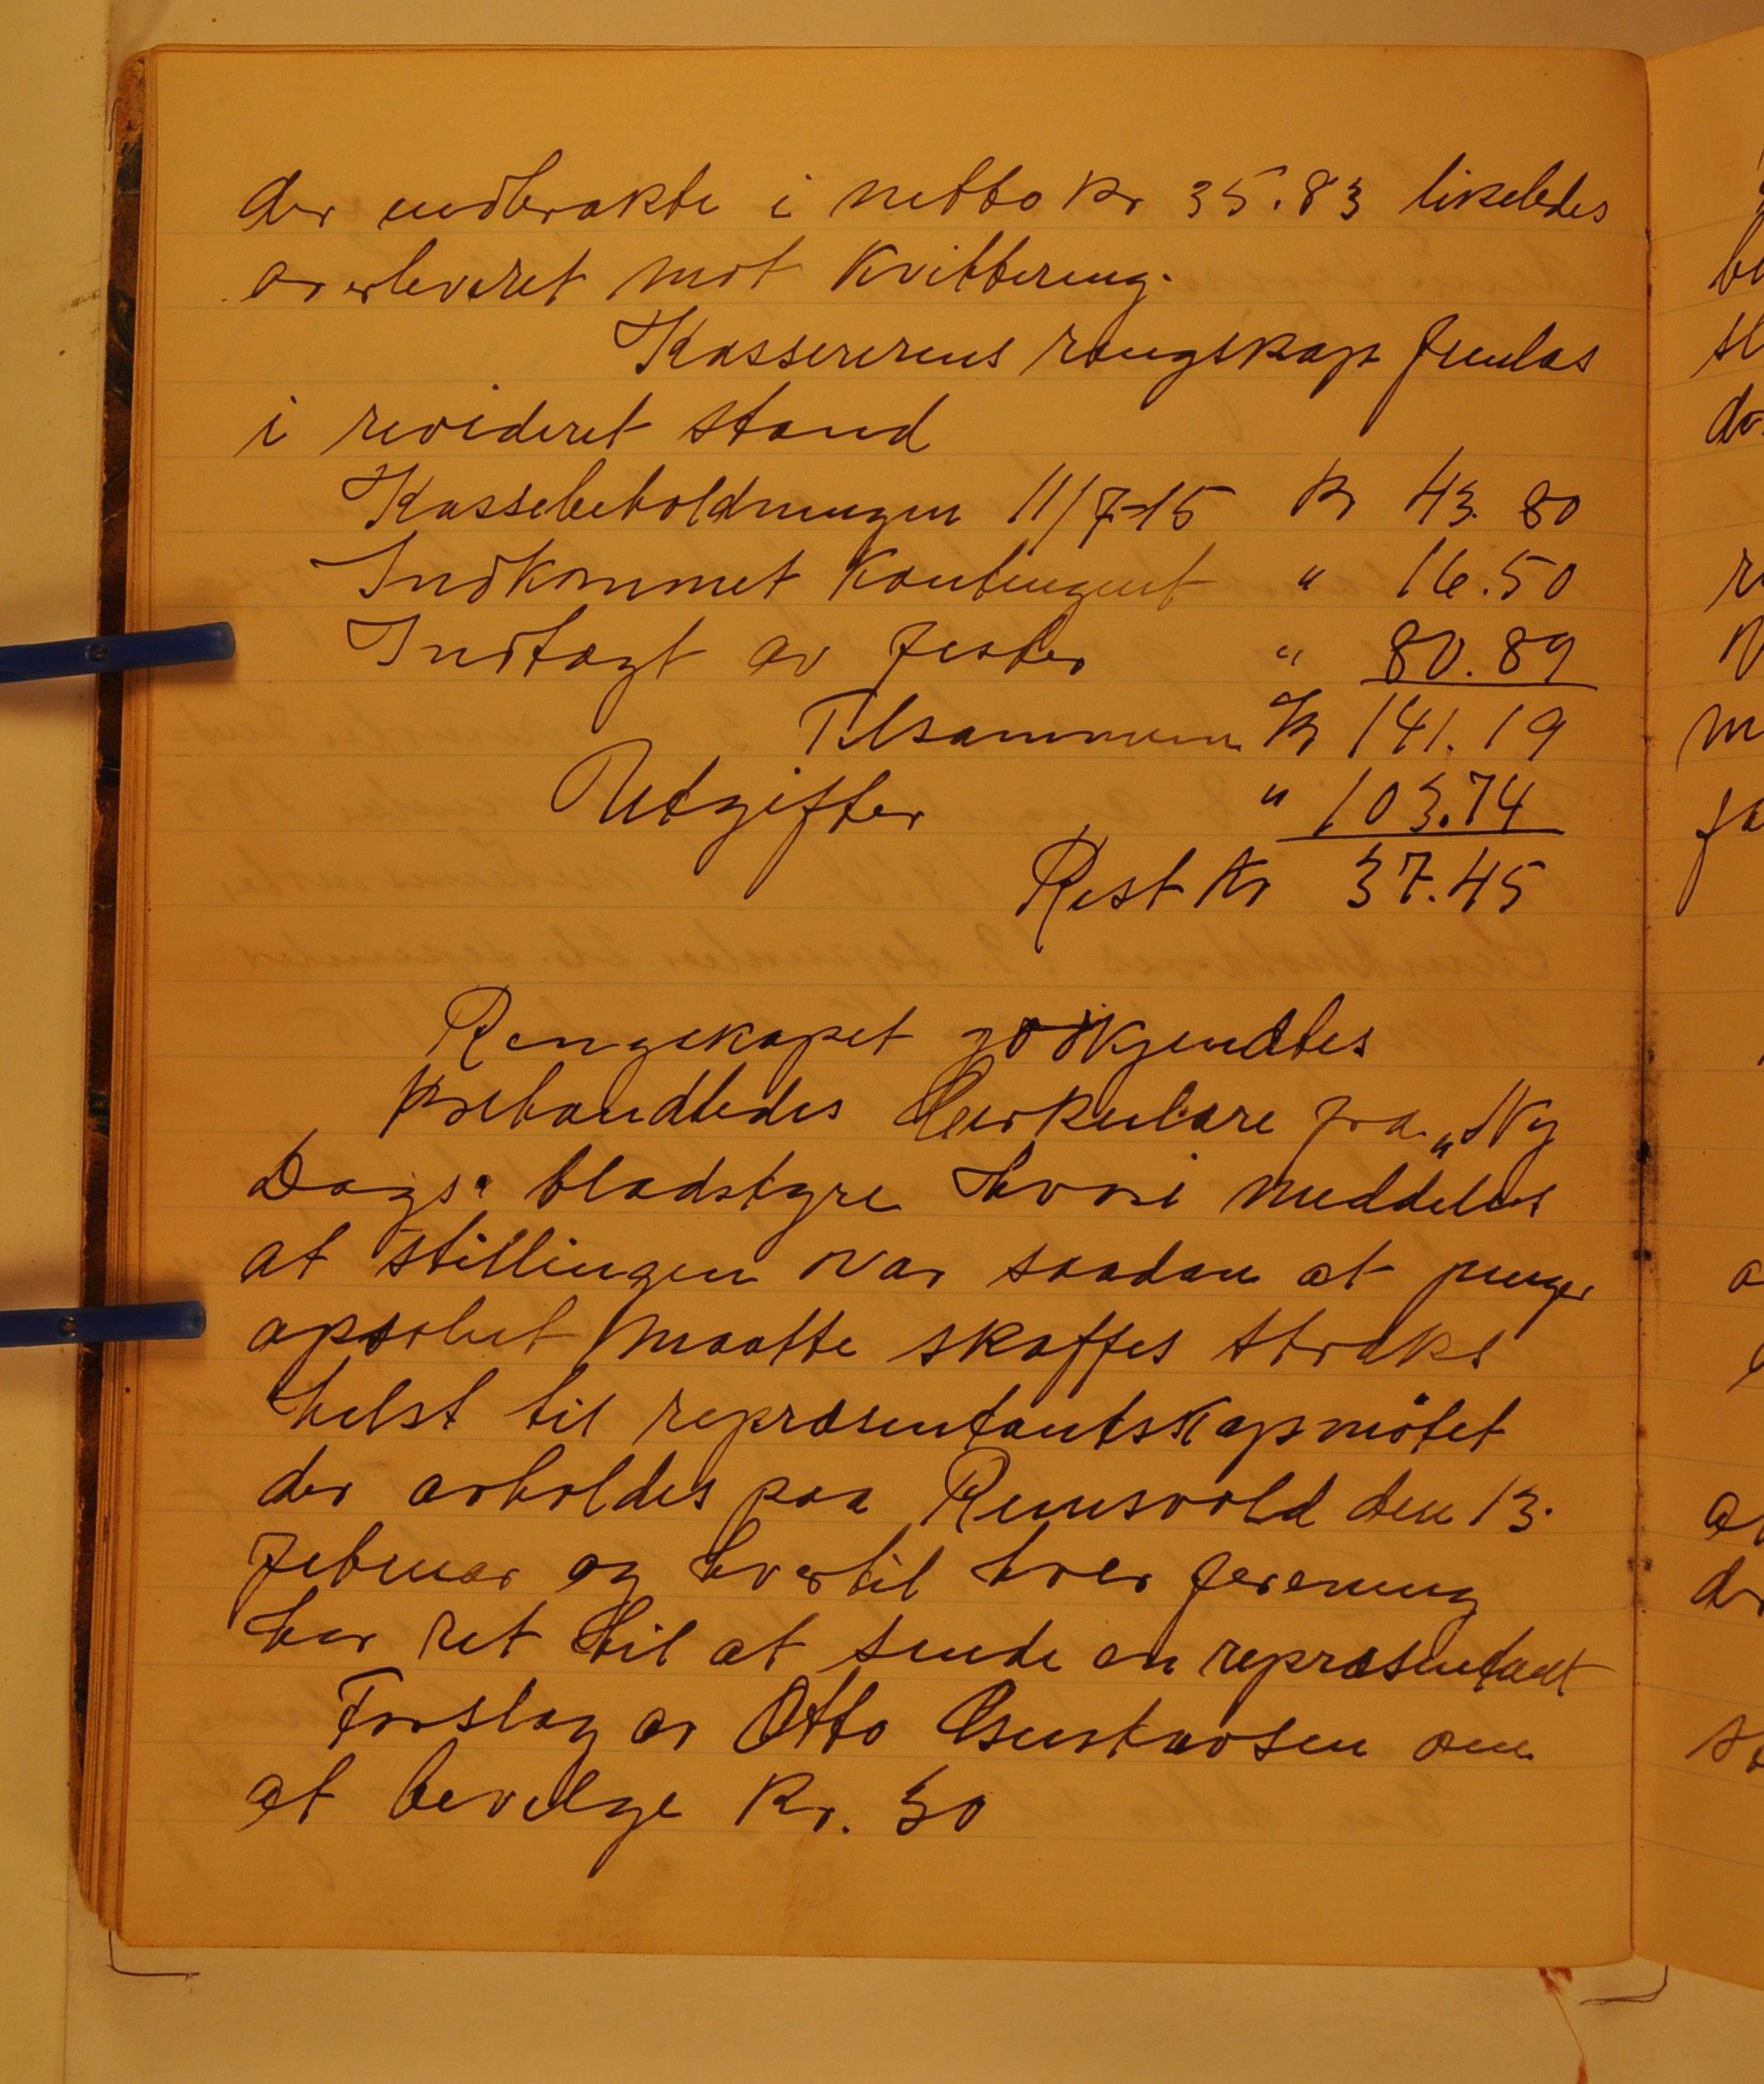 der indbrakte i netto kr 35.83 likeledes
overleveret mot kvittering.
Kassererens rengskap fandtes
i revideret stand
Kassebeholdningen 11/7-15 Kr 43.80
Indkommet kontingent " 16.50
Indtægt av fester " 80.89
Tilsammen Kr 141.19
Utgifter " 103.74
Rest Kr 37.45
Rengskapet godkjendtes
behandledes Cirkulære fra „Ny
Dags" bladstyre hvori meddeltes
at stillingen var saadan at penger
apsolut maatte skaffes straks
helst til repræsentantskapsmötet
der avholdes paa Rensvold den 13.
februar og hvortil hver forening
har ret til at sende en repræsentant
Forslag av Otto Gustavsen om
at bevilge Kr. 30